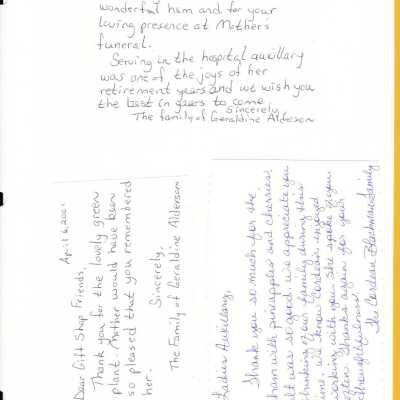 wonderful ham and for your
loving presence at Mother's
funeral.
Serving in the hospital auxillary
was one of the joys of her
retirement years and we wish you
the best in years to come.
Sincerely,
The family of Geraldine Alderson
April 6, 2001
Dear Gift Shop Friends,
Thank you for the lovely green
plant. Mother would have been
so pleased that you remembered
her.
Sincerely,
The Family of Geraldine Alderson
Ladies Auxiliary,
Thank you so much for the
ham with pineapples and cherries!
It was so good. We appreciate you
thinking of our family during this
time. We know Cordean enjoyed
working with you. She spoke of you
often. Thanks again for your
thoughtfulness!
The Cordean Blackman family